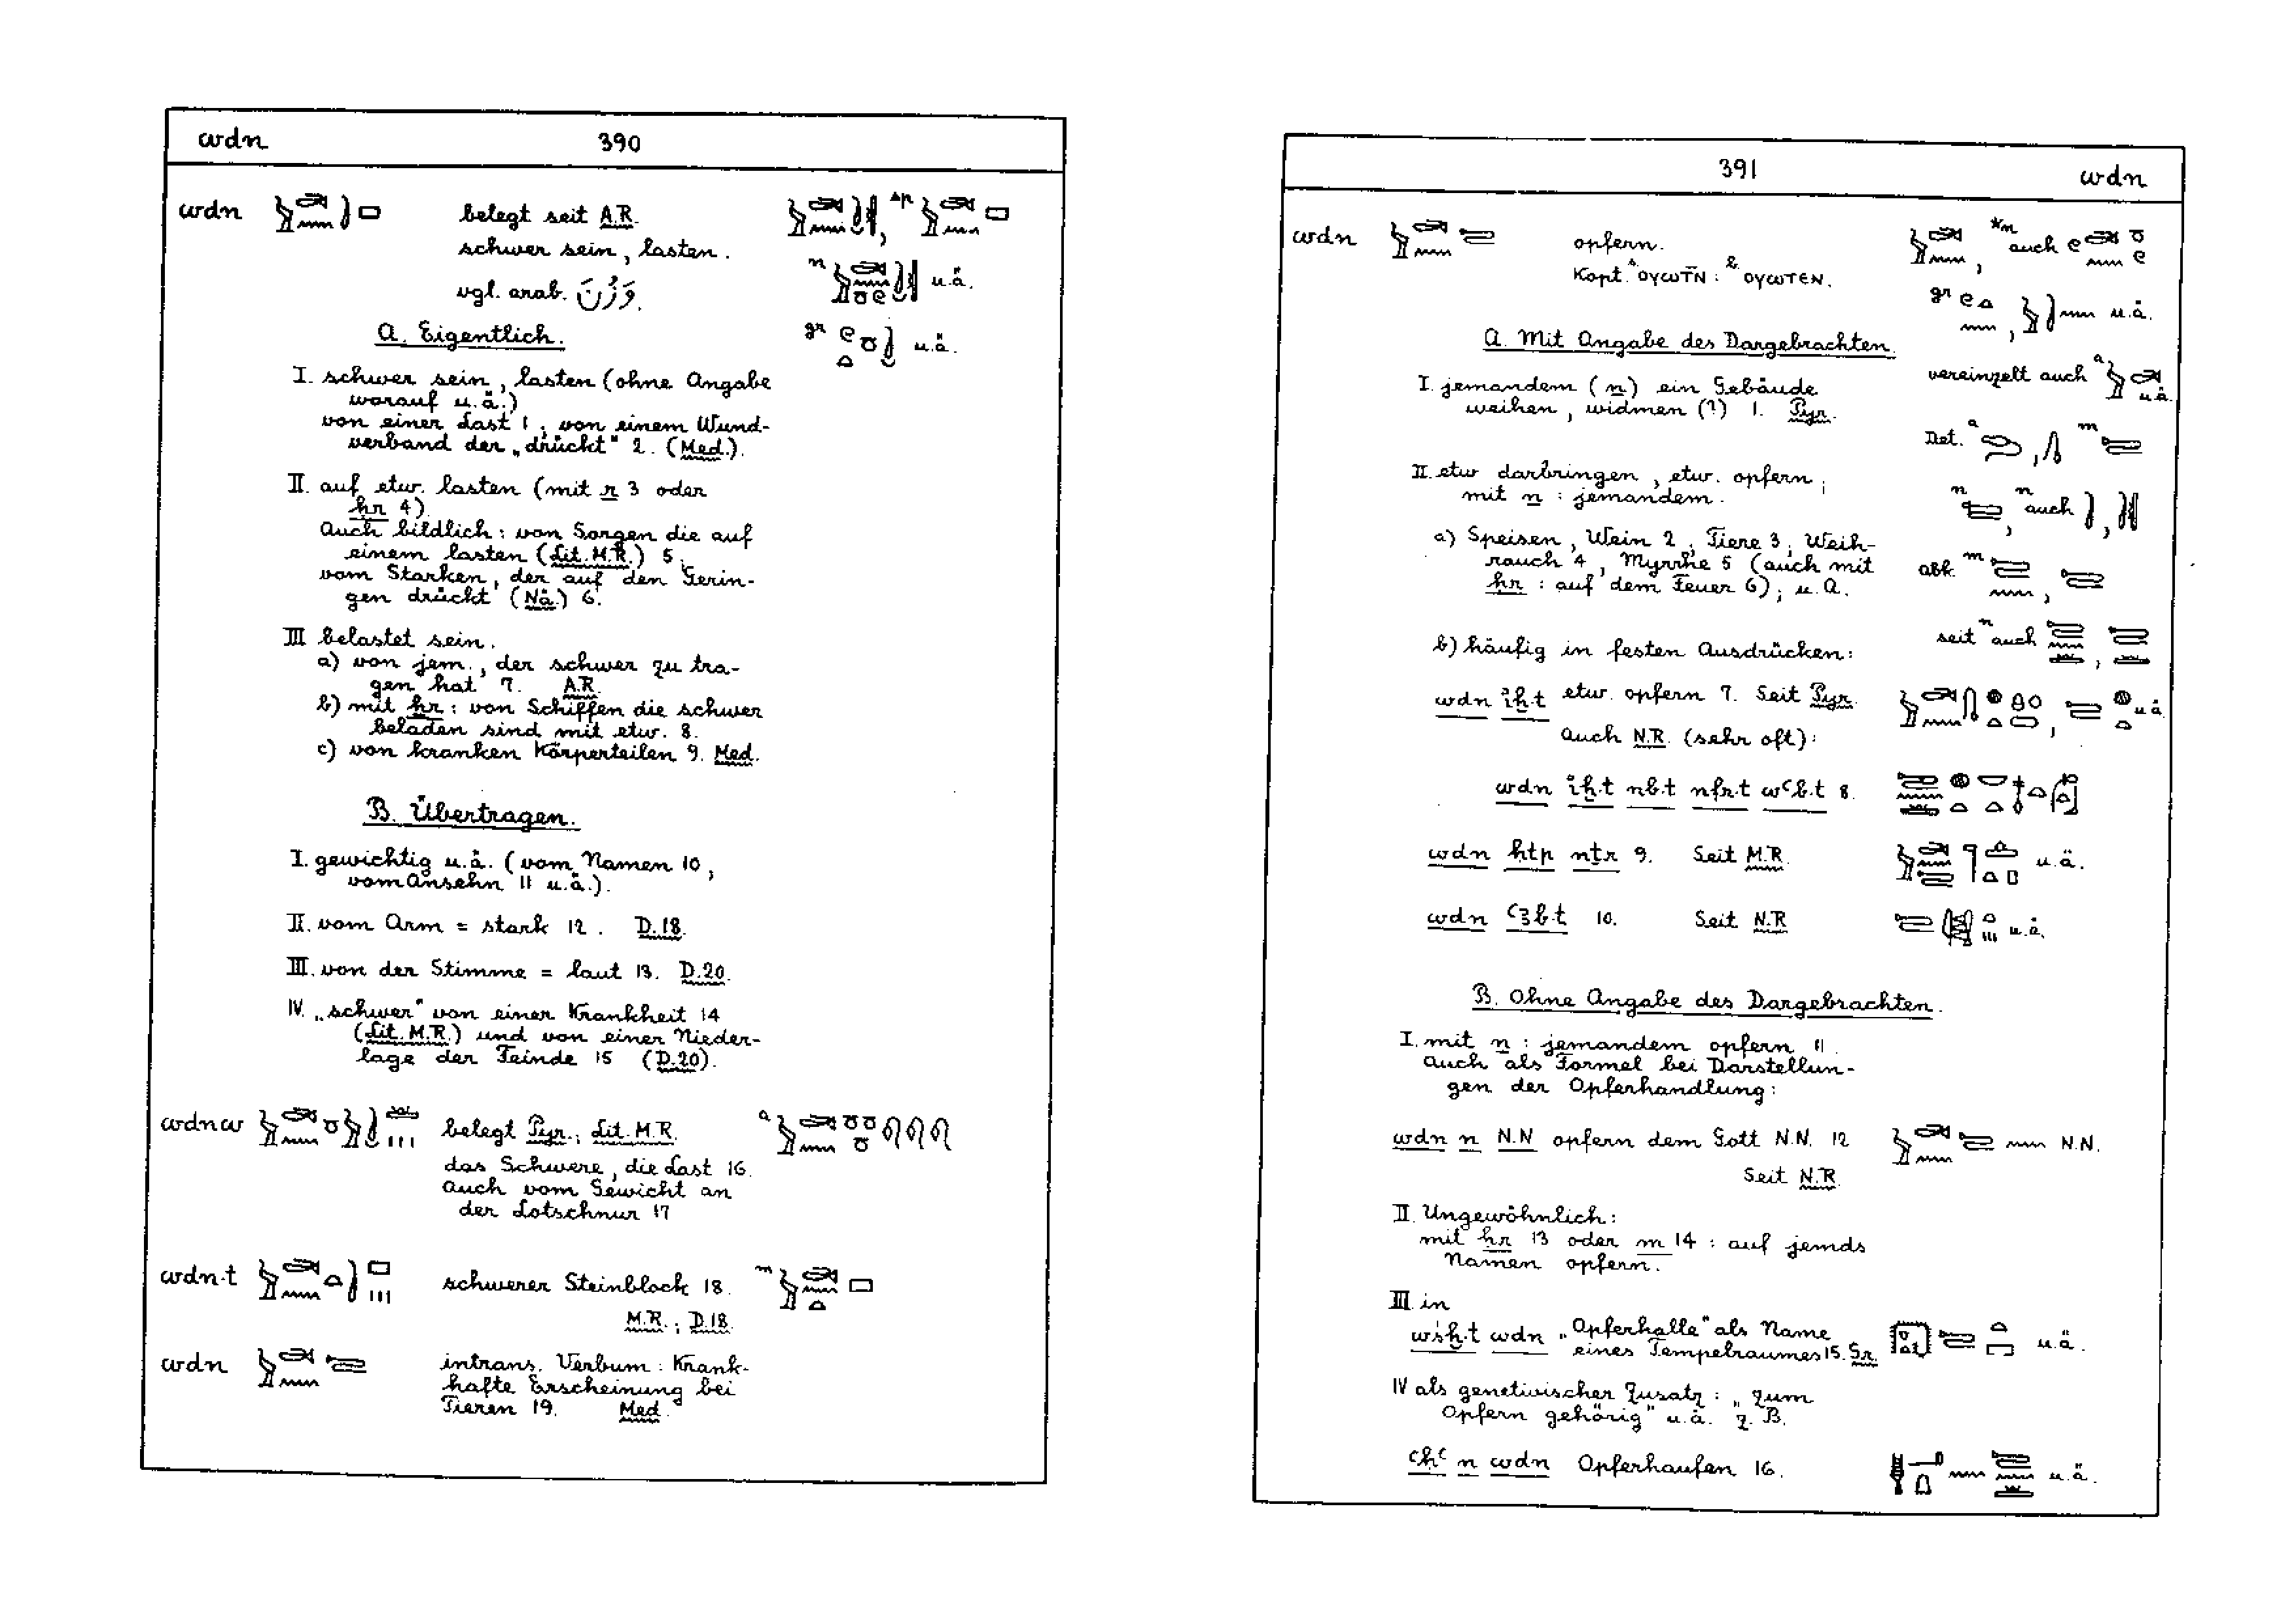 wdn 390
wdn belegt seit A.R.
schwer sein, lasten.
vgl. arab. وَزُنَ.
u.ä.
A. Eigentlich.
gr u.ä.
I. schwer sein, lasten (ohne Angabe
worauf u.ä.)
von einer Last 1; von einem Wund-
verband der „drückt" 2. (Med.).
II. auf etw. lasten (mit r 3 oder
ḥr 4).
Auch bildlich: von Sorgen die auf
einem lasten (Lit. M.R.) 5;
vom Starken, der auf den Gerin-
gen drückt (Nä.) 6.
III belastet sein.
a) von jem., der schwer zu tra-
gen hat 7. A.R.
b) mit ḥr: von Schiffen die schwer
beladen sind mit etw. 8.
c) von kranken Körperteilen 9. Med.
B. Übertragen.
I. gewichtig u.ä. (vom Namen 10,
vom Ansehn 11 u.ä.).
II. vom Arm = stark 12. D.18.
III. von der Stimme = laut 13. D.20.
IV. „schwer" von einer Krankheit 14
(Lit. M.R.) und von einer Nieder-
lage der Feinde 15 (D.20).
wdnw belegt Pyr.; Lit. M.R.
das Schwere, die Last 16.
Auch vom Gewicht an
der Lotschnur 17
wdn·t schwerer Steinblock 18.
M.R.; D.18.
wdn intrans. Verbum: Krank-
hafte Erscheinung bei
Tieren 19. Med.
391 wdn
wdn opfern. auch
Kopt. ⲟⲩⲱⲧⲛ̄: ⲟⲩⲱⲧⲉⲛ.
gr u.ä.
A. Mit Angabe des Dargebrachten.
vereinzelt auch u.ä.
I. jemandem (n) ein Gebäude
weihen, widmen (?) 1. Pyr.
Det.
II. etw darbringen, etw. opfern;
mit n: jemandem.
auch
a) Speisen, Wein 2; Tiere 3; Weih-
rauch 4, Myrrhe 5 (auch mit
ḥr: auf dem Feuer 6); u. A.
abk.
b) häufig in festen Ausdrücken:
seit n auch
wdn iḫ·t etw. opfern 7. Seit Pyr. u.ä.
Auch N.R. (sehr oft):
wdn iḫ·t nb·t nfr·t wꜥb·t 8.
wdn ḥtp nṯr 9. Seit M.R. u.ä.
wdn ꜥꜣb·t 10. Seit N.R u.ä.
B. Ohne Angabe des Dargebrachten.
I. mit n: jemandem opfern 11.
Auch als Formel bei Darstellun-
gen der Opferhandlung:
wdn n N.N opfern dem Gott N.N. 12 N.N.
Seit N.R.
II. Ungewöhnlich:
mit ḥr 13 oder m 14: auf jemds
Namen opfern.
III. in
wśḫ·t wdn „Opferhalle" als Name
eines Tempelraumes 15. Gr. u.ä.
IV als genetivischer Zusatz: „zum
Opfern gehörig" u.ä. z. B.
ꜥḥꜥ n wdn Opferhaufen 16. u.ä.